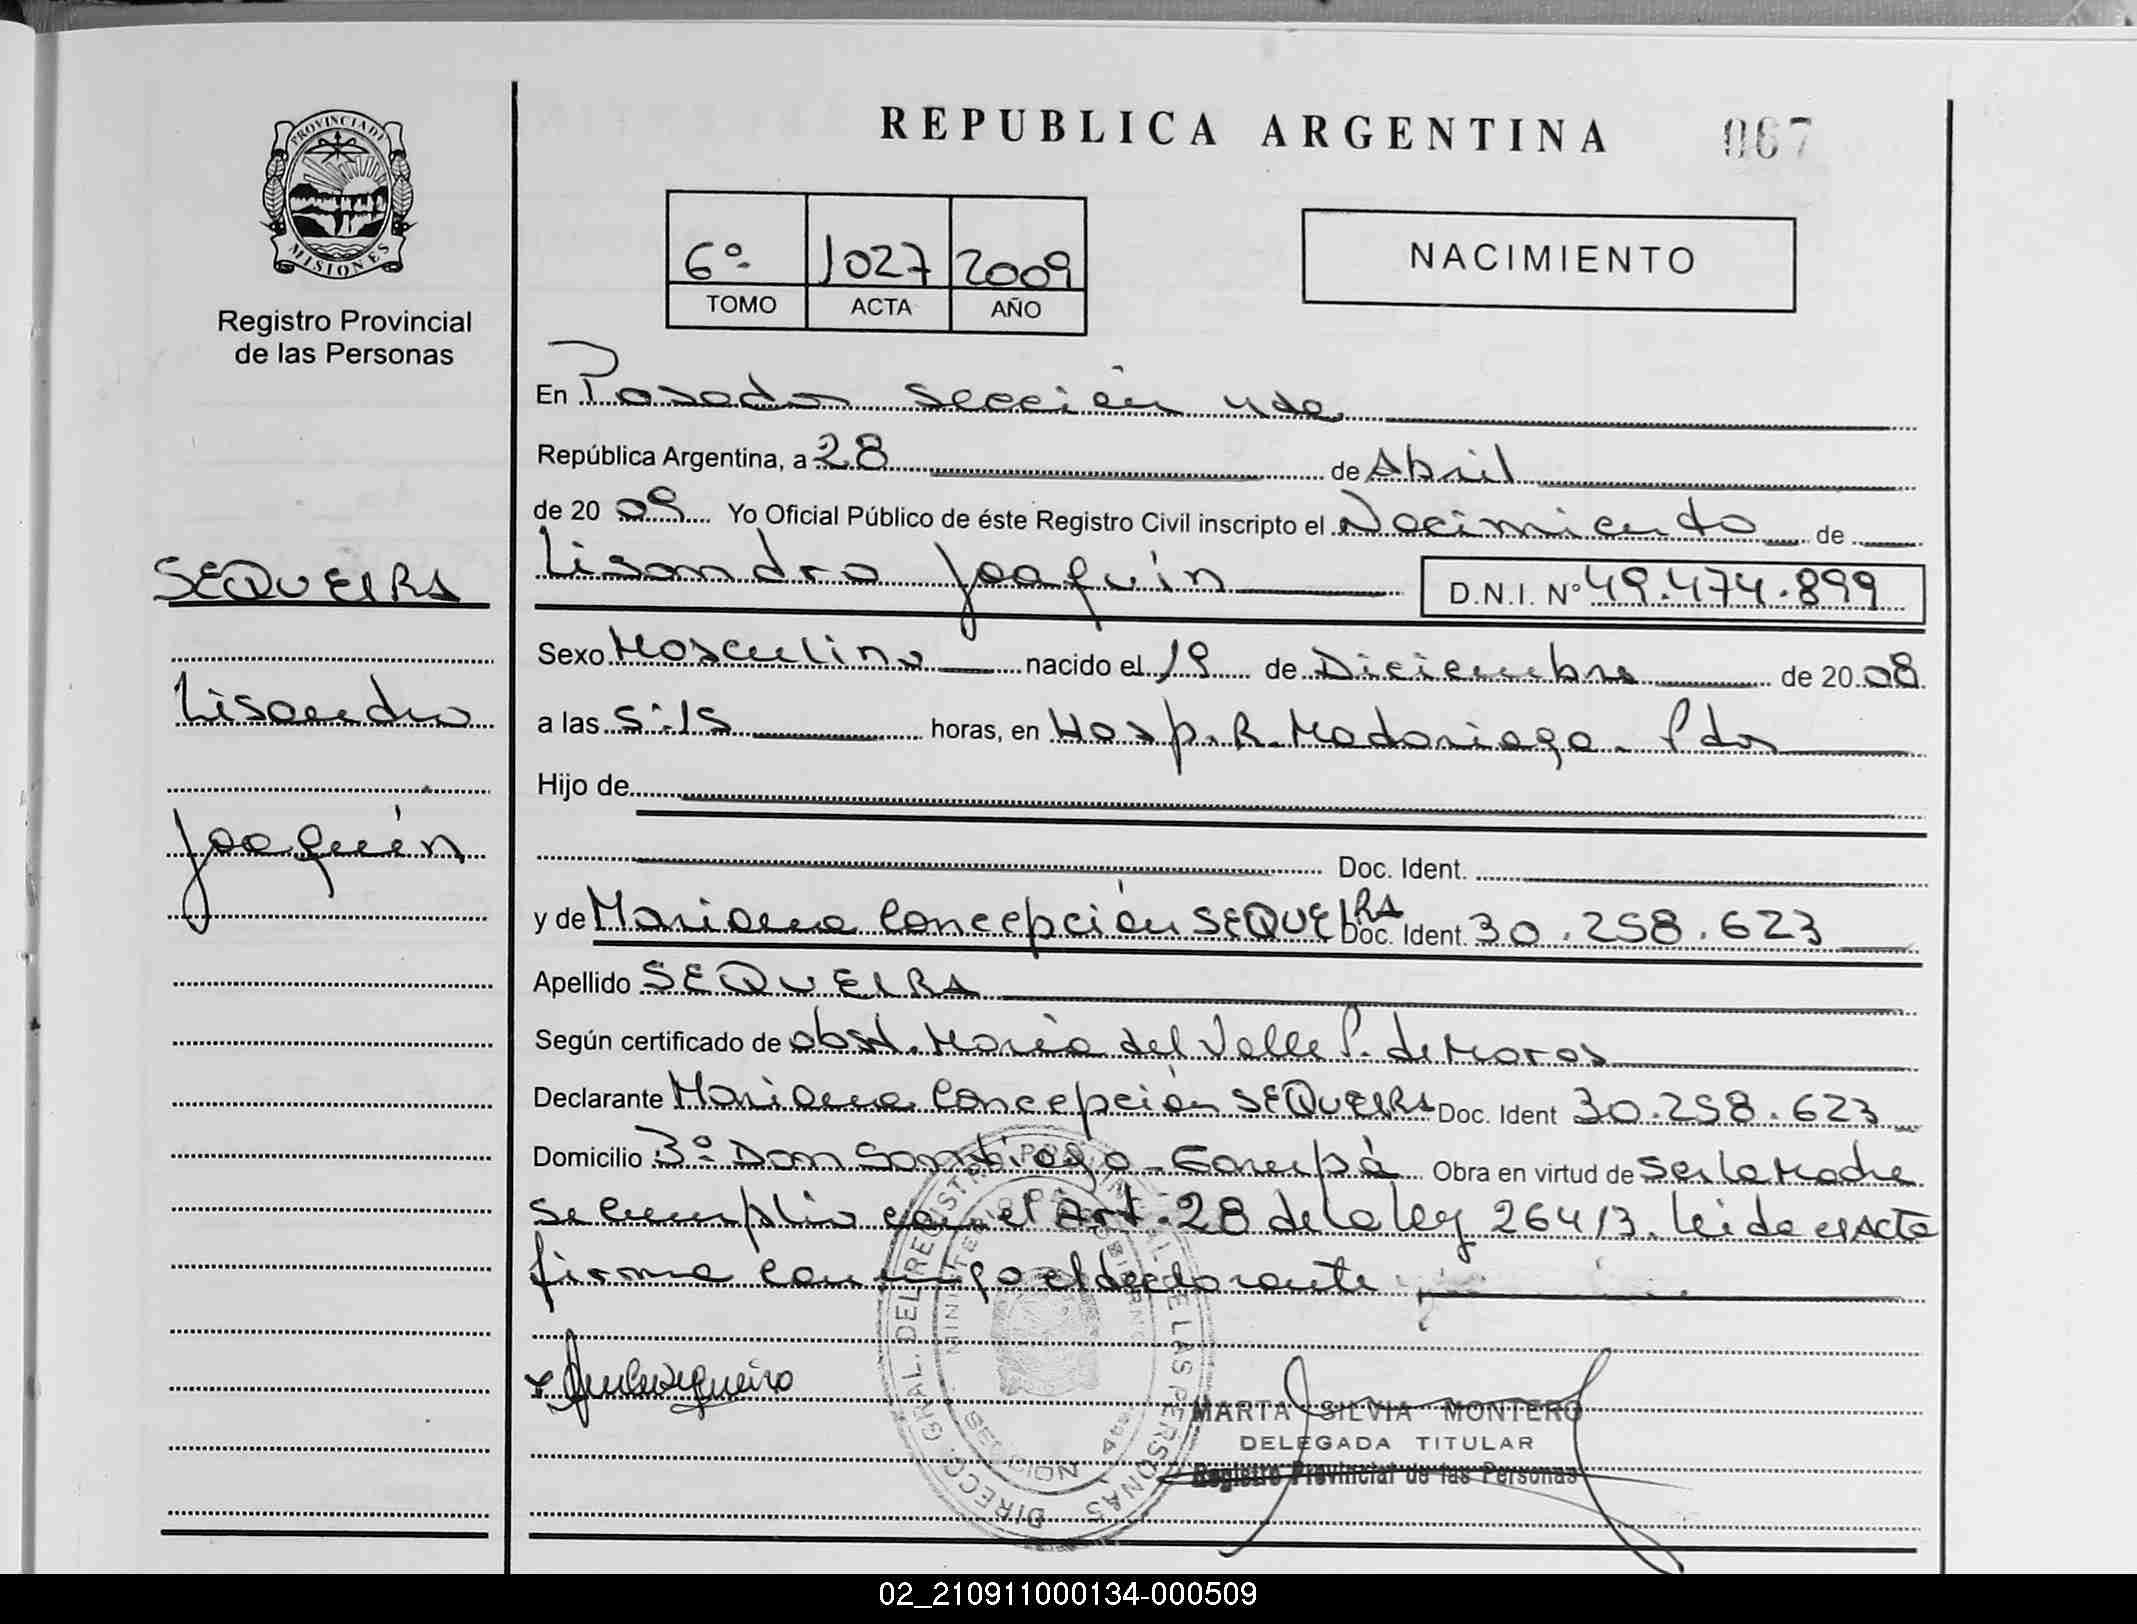 PROVINCIA DE
MISIONES
Registro Provincial
de las Personas
SEQUEIRA
Lisandro
Joaquín
REPUBLICA ARGENTINA 067
6º 1027 2009
TOMO ACTA AÑO
NACIMIENTO
En Posadas sección 4ta.
República Argentina, a 28 de Abril
de 20 09 Yo Oficial Público de éste Registro Civil inscripto el Nacimiento de
Lisandro Joaquín D.N.I. Nº 49.474.899
Sexo Masculino nacido el 19 de Diciembre de 20 08
a las 5:15 horas, en Hosp. R. Madariaga - Pdas
Hijo de
Doc. Ident.
y de Mariana Concepción SEQUEIRA Doc. Ident. 30.258.623
Apellido SEQUEIRA
Según certificado de obst. María del Valle P. de
Declarante Mariana Concepción SEQUEIRA Doc. Ident 30.258.623
Domicilio 3º Don Santiago - Garupá Obra en virtud de Ser la Madre
se cumplio con el Art. 28 de la ley 26413. leida el Acta
firma conmigo el declarante
DIRECC. GRAL. DEL REGISTRO PROVINCIAL DE LAS PERSONAS
MINISTERIO DE GOBIERNO
SECCION 4ta
MARTA SILVIA MONTERO
DELEGADA TITULAR
Registro Provincial de las Personas
02_210911000134-000509